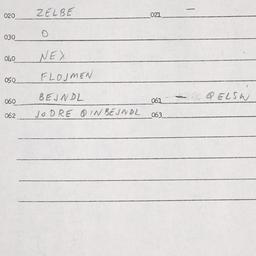 020 ZELBE 021 —
030 O
040 NEX
050 FLOJMEN
060 BEJNDL 061 —
062 JODRE QINBEJNDL 063